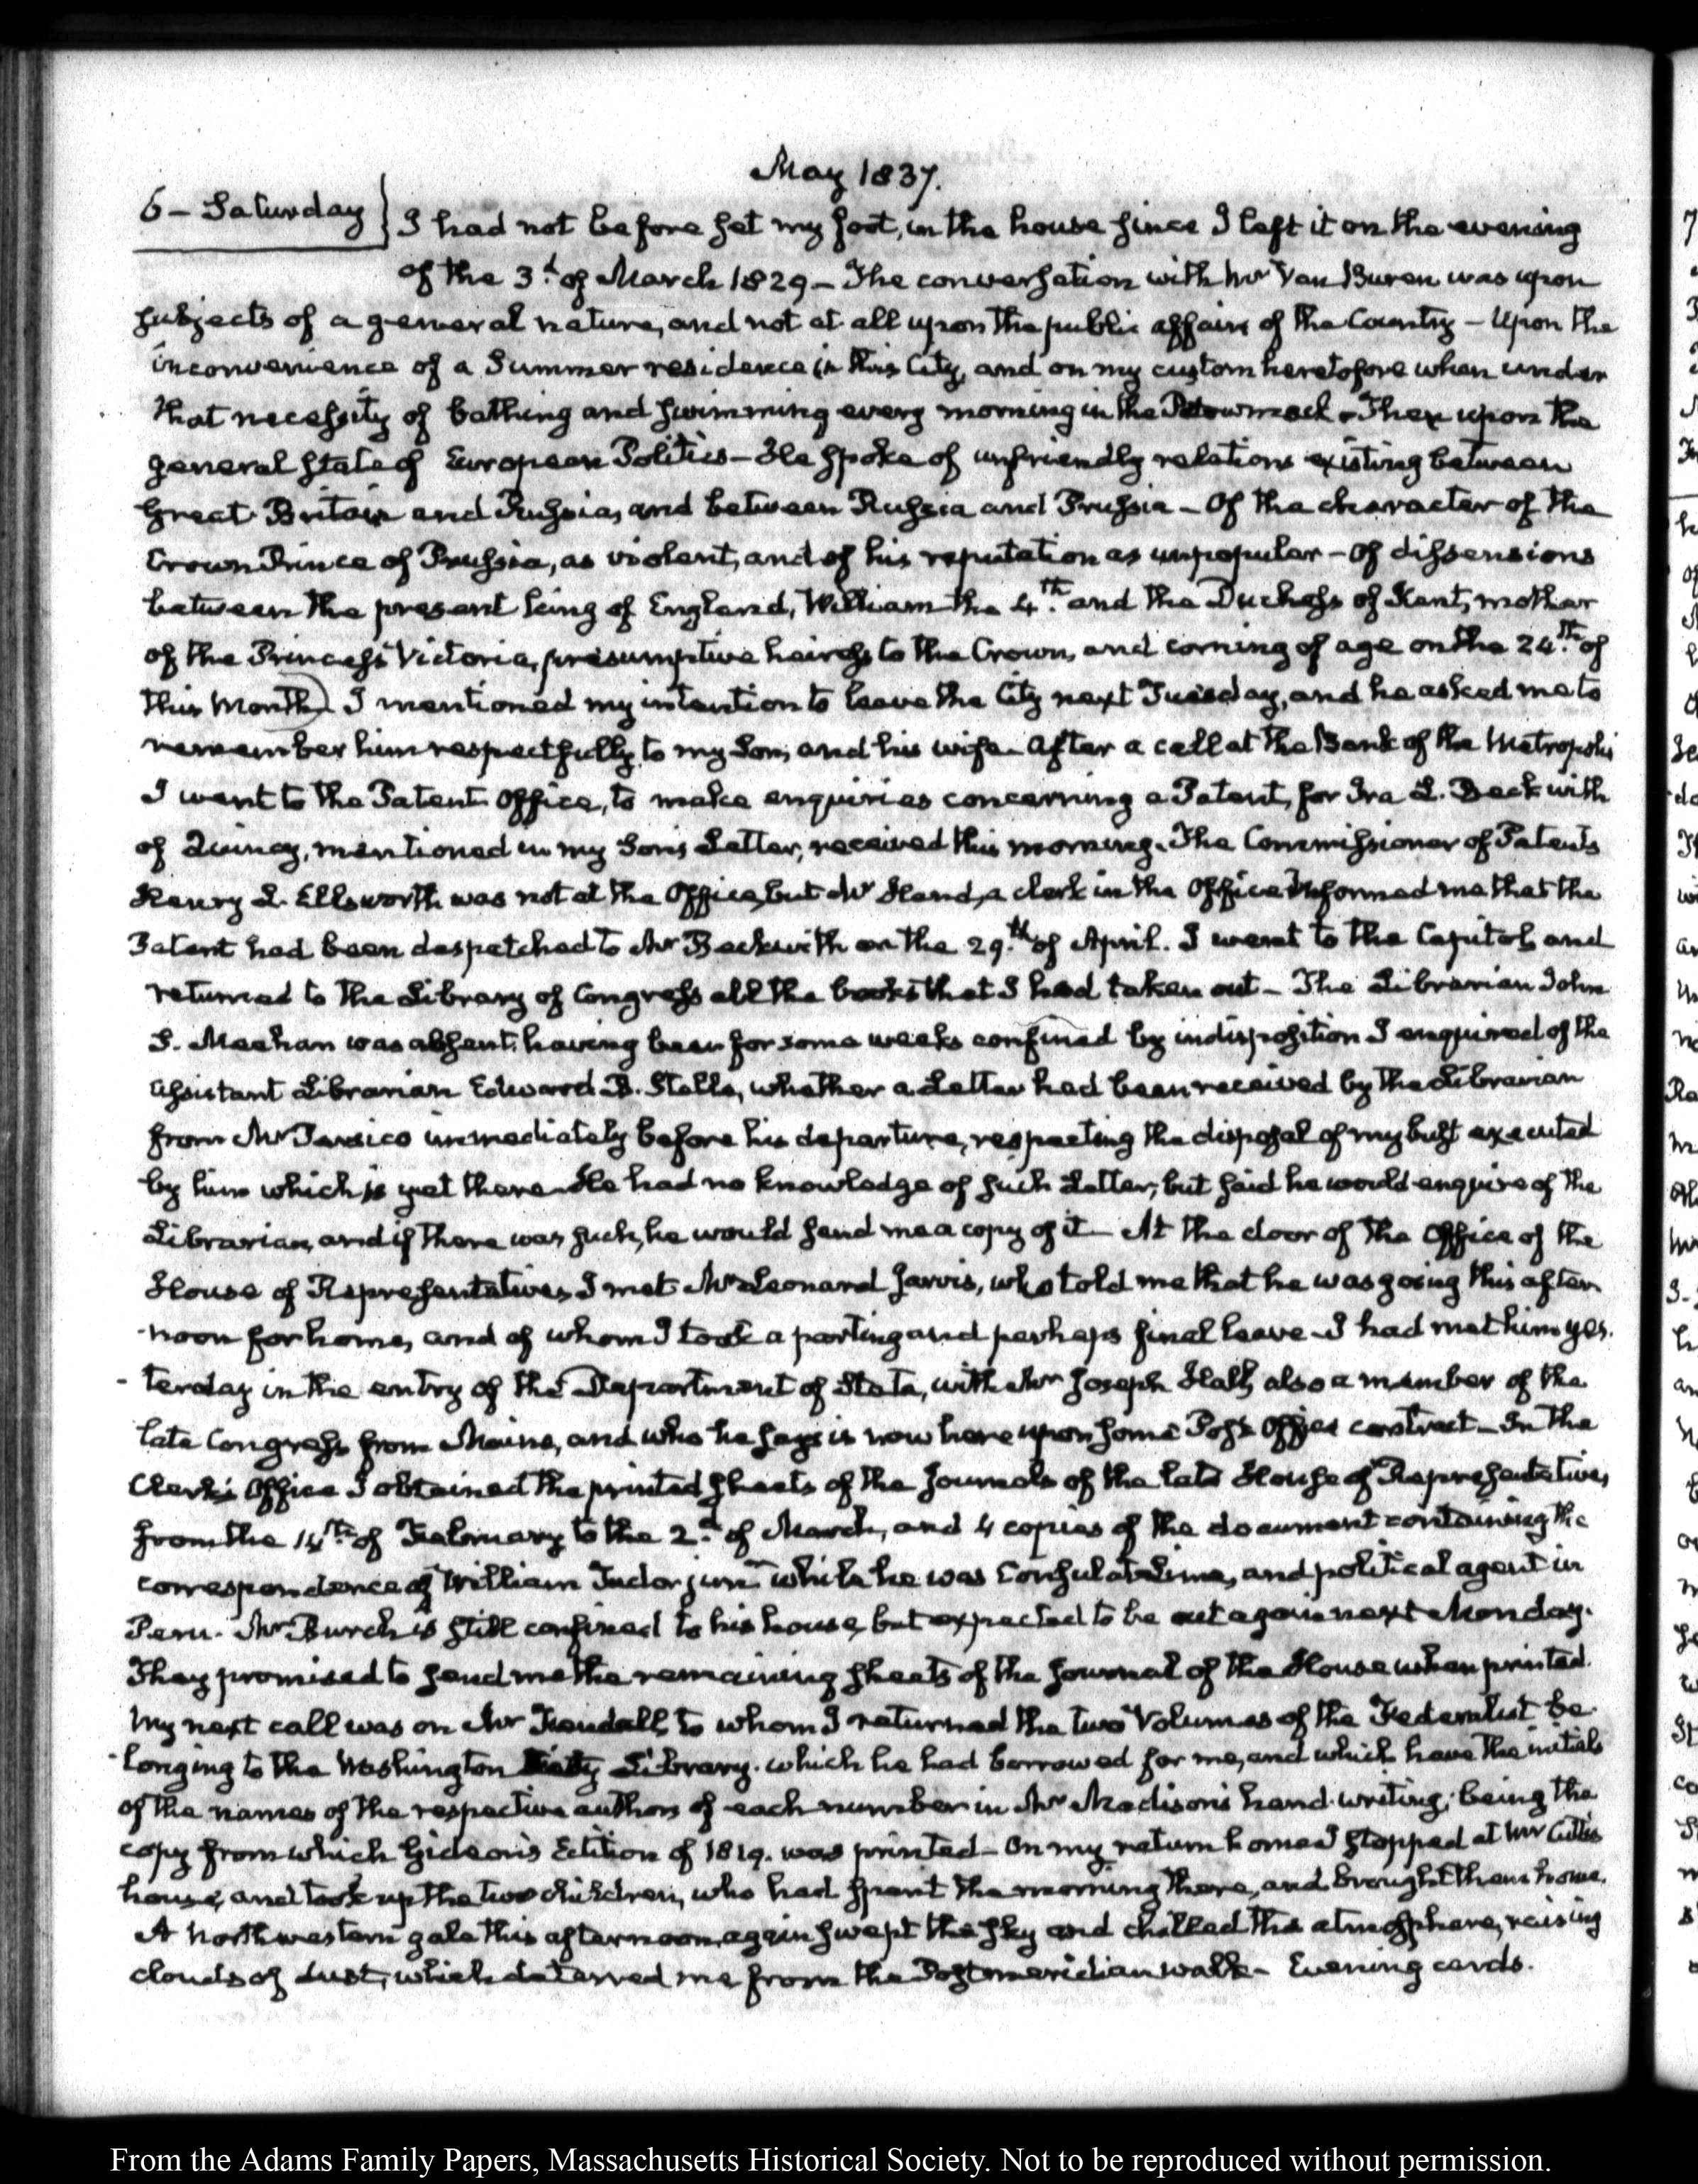 May 1837.
6 – Saturday } I had not before set my foot, in the house since I left it on the evening
of the 3.d of March 1829 – The conversation with Mr Van Buren was upon
subjects of a general nature, and not at all upon the public affairs of the Country – Upon the
inconvenience of a Summer residence in this City, and on my custom heretofore when under
that necessity of bathing and swimming every morning in the Potowmack. Then upon the
general state of European Politics – He spoke of unfriendly relations existing between
Great Britain and Russia, and between Russia and Prussia – Of the character of the
Crown Prince of Prussia, as violent, and of his reputation as unpopular – Of dissensions
between the present King of England, William the 4.th and the Duchess of Kent, mother
of the Princess Victoria, presumptive heiress to the Crown, and coming of age on the 24.th of
this Month. I mentioned my intention to leave the City next Tuesday, and he asked me to
remember him respectfully to my Son, and his wife – After a call at the Bank of the Metropolis
I went to the Patent Office, to make enquiries concerning a Patent, for Ira L. Beckwith
of Quincy, mentioned in my Son's Letter, received this morning. The Commissioner of Patents
Henry L. Ellsworth was not at the Office, but Mr Hand, a clerk in the Office informed me that the
Patent had been despatched to Mr Beckwith on the 29.th of April. I went to the Capitol and
returned to the Library of Congress all the books that I had taken out – The Librarian John
S. Meehan was absent, having been for some weeks confined by indisposition I enquired of the
assistant Librarian Edward B. Stelle, whether a Letter had been received by the Librarian
from Mr Persico immediately before his departure, respecting the disposal of my bust executed
by him which is yet there – He had no knowledge of such Letter, but said he would enquire of the
Librarian, and if there was such, he would send me a copy of it – At the door of the Office of the
House of Representatives, I met Mr Leonard Jarvis, who told me that he was going this after
-noon for home, and of whom I took a parting and perhaps final leave – I had met him yes.
-terday in the entry of the Department of State, with Mr Joseph Hall, also a member of the
late Congress from Maine, and who he says is now here upon some Post Office contract – In the
Clerk's Office I obtained the printed sheets of the Journals of the late House of Representatives,
from the 14.th of February to the 2.d of March, and 4 copies of the document containing the
correspondence of William Tudor junr while he was Consul at Lima, and political agent in
Peru. Mr Burch is still confined to his house, but expected to be out again next Monday.
They promised to send me the remaining sheets of the Journal of the House when printed.
My next call was on Mr Kendall, to whom I returned the two Volumes of the Federalist be-
-longing to the Washington Library. which he had borrowed for me, and which have the initials
of the names of the respective authors of each number in Mr Madison's hand-writing; being the
copy from which Gideon's Edition of 1819. was printed – On my return home I stopped at Mr Cutts's
house, and took up the two children, who had spent the morning there, and brought them home.
A Northwestern gale this afternoon, again swept the sky and chilled the atmosphere, raising
clouds of dust, which deterred me from the Postmeridian walk – Evening cards.
From the Adams Family Papers, Massachusetts Historical Society. Not to be reproduced without permission.